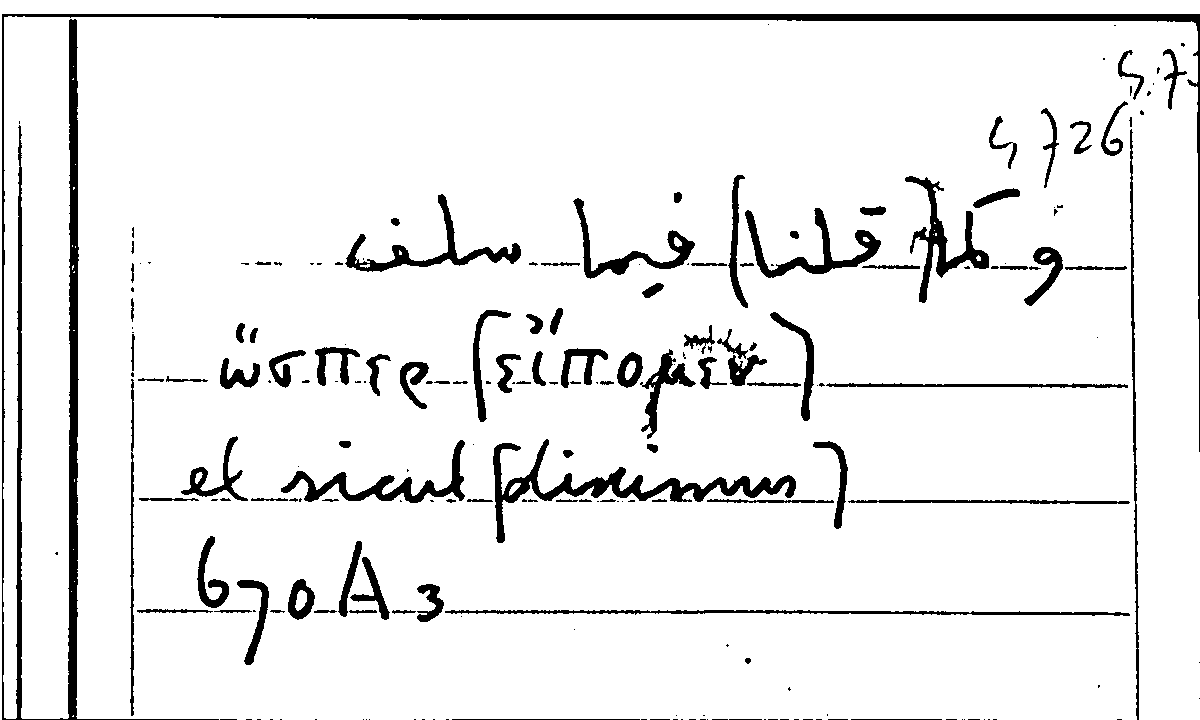 5 726
وكما [قلنا] فيما سلف
ὥσπερ [εἴπομεν]
et sicut [diximus]
670 A 3